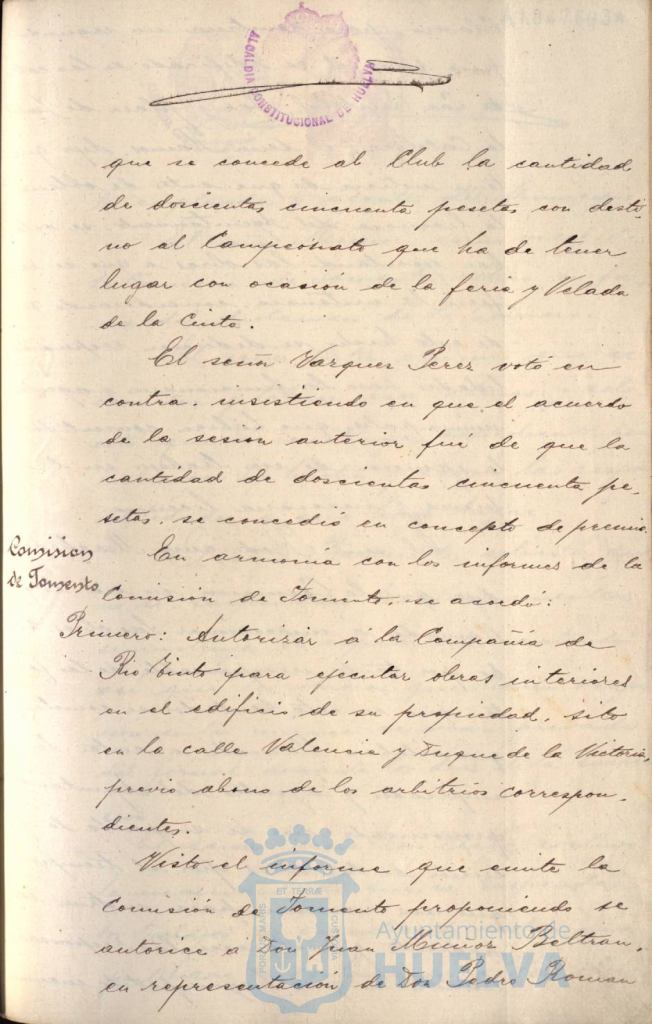 ALCALDIA CONSTITUCIONAL DE HUELVA
que se concede al Club la cantidad
de doscientas cincuenta pesetas con desti-
no al Campeonato que ha de tener
lugar con ocasión de la feria y Velada
de la Cinta.
El señor Vazquez Perez votó en
contra, insistiendo en que el acuerdo
de la sesión anterior fué de que la
cantidad de doscientas cincuenta pe-
setas, se concedió en concepto de premio.
Comision
de Fomento
En armonía con los informes de la
Comisión de Fomento, se acordó:
Primero: Autorizar á la Compañía de
Rio Tinto para ejecutar obras interiores
en el edificio de su propiedad, sito
en la calle Valencia y Duque de la Victoria,
previo abono de los arbitrios correspon-
dientes.
Visto el informe que emite la
Comisión de Fomento proponiendo se
autorice a Don Juan Muñoz Beltran,
en representación de Don Pedro Roman
Ayuntamiento de
HUELVA